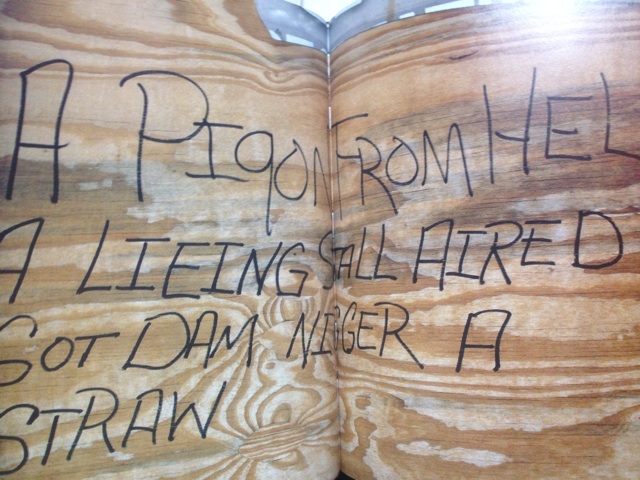 A PIGON FROM HEL
A LIEING SALL AIRED
GOT DAM NIGGER A
STRAW